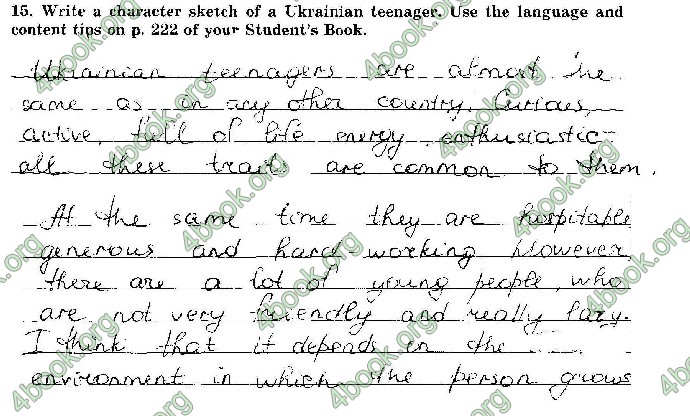 15. Write a character sketch of a Ukrainian teenager. Use the language and
content tips on p. 222 of your Student's Book.
Ukrainian teenagers are almost the
same as in any other country. Curious,
active, full of life energy, enthusiastic-
all these traits are common to them.
At the same time they are hospitable
generous and hard-working. However,
there are a lot of young people, who
are not very friendly and really lazy.
I think that it depends on the
environment in which the person grows
4book.org